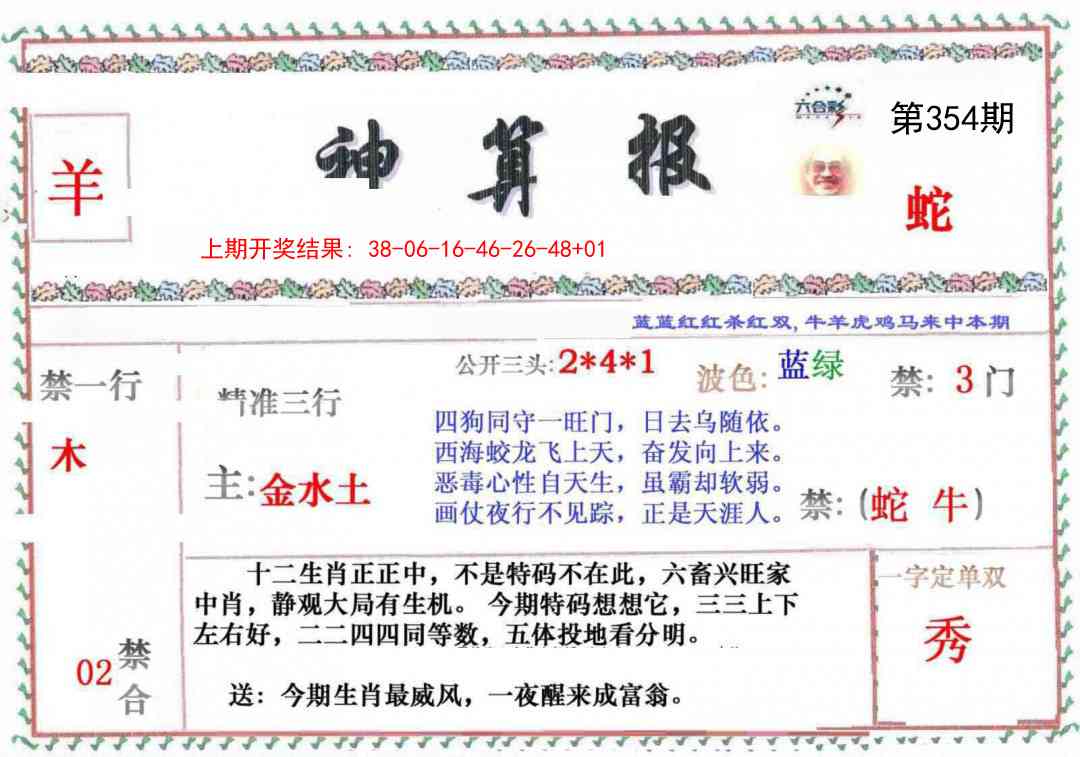 六合彩
第354期
羊
神算报
蛇
上期开奖结果：38-06-16-46-26-48+01
蓝蓝红红杀红双,牛羊虎鸡马来中本期
禁一行
木
精准三行
主:金水土
公开三头:2*4*1
波色:蓝绿
禁:3门
四狗同守一旺门，日去乌随依。
西海蛟龙飞上天，奋发向上来。
恶毒心性自天生，虽霸却软弱。
画仗夜行不见踪，正是天涯人。
禁:(蛇 牛)
十二生肖正正中，不是特码不在此，六畜兴旺家
中肖，静观大局有生机。 今期特码想想它，三三上下
左右好，二二四四同等数，五体投地看分明。
送：今期生肖最威风，一夜醒来成富翁。
一字定单双
秀
02禁合